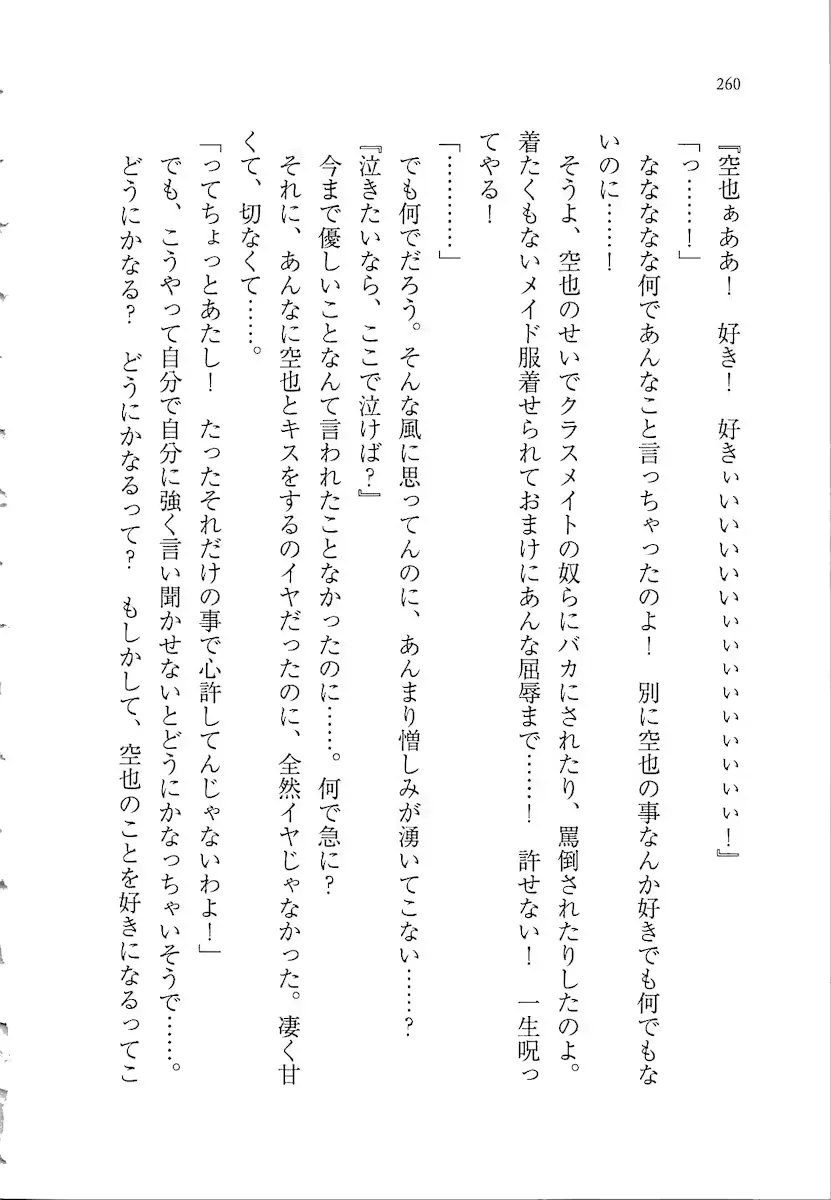 260
『空也ぁああ！　好き！　好きぃいいいいいぃぃぃぃぃぃぃぃ！』
「っ……！」
ななななな何であんなこと言っちゃったのよ！　別に空也の事なんか好きでも何でもな
いのに……！
そうよ、空也のせいでクラスメイトの奴らにバカにされたり、罵倒されたりしたのよ。
着たくもないメイド服着せられておまけにあんな屈辱まで……！　許せない！　一生呪っ
てやる！
「…………」
でも何でだろう。そんな風に思ってんのに、あんまり憎しみが湧いてこない……？
『泣きたいなら、ここで泣けば？』
今まで優しいことなんて言われたことなかったのに……。何で急に？
それに、あんなに空也とキスをするのイヤだったのに、全然イヤじゃなかった。凄く甘
くて、切なくて……。
「ってちょっとあたし！　たったそれだけの事で心許してんじゃないわよ！」
でも、こうやって自分で自分に強く言い聞かせないとどうにかなっちゃいそうで……。
どうにかなる？　どうにかなるって？　もしかして、空也のことを好きになるってこ